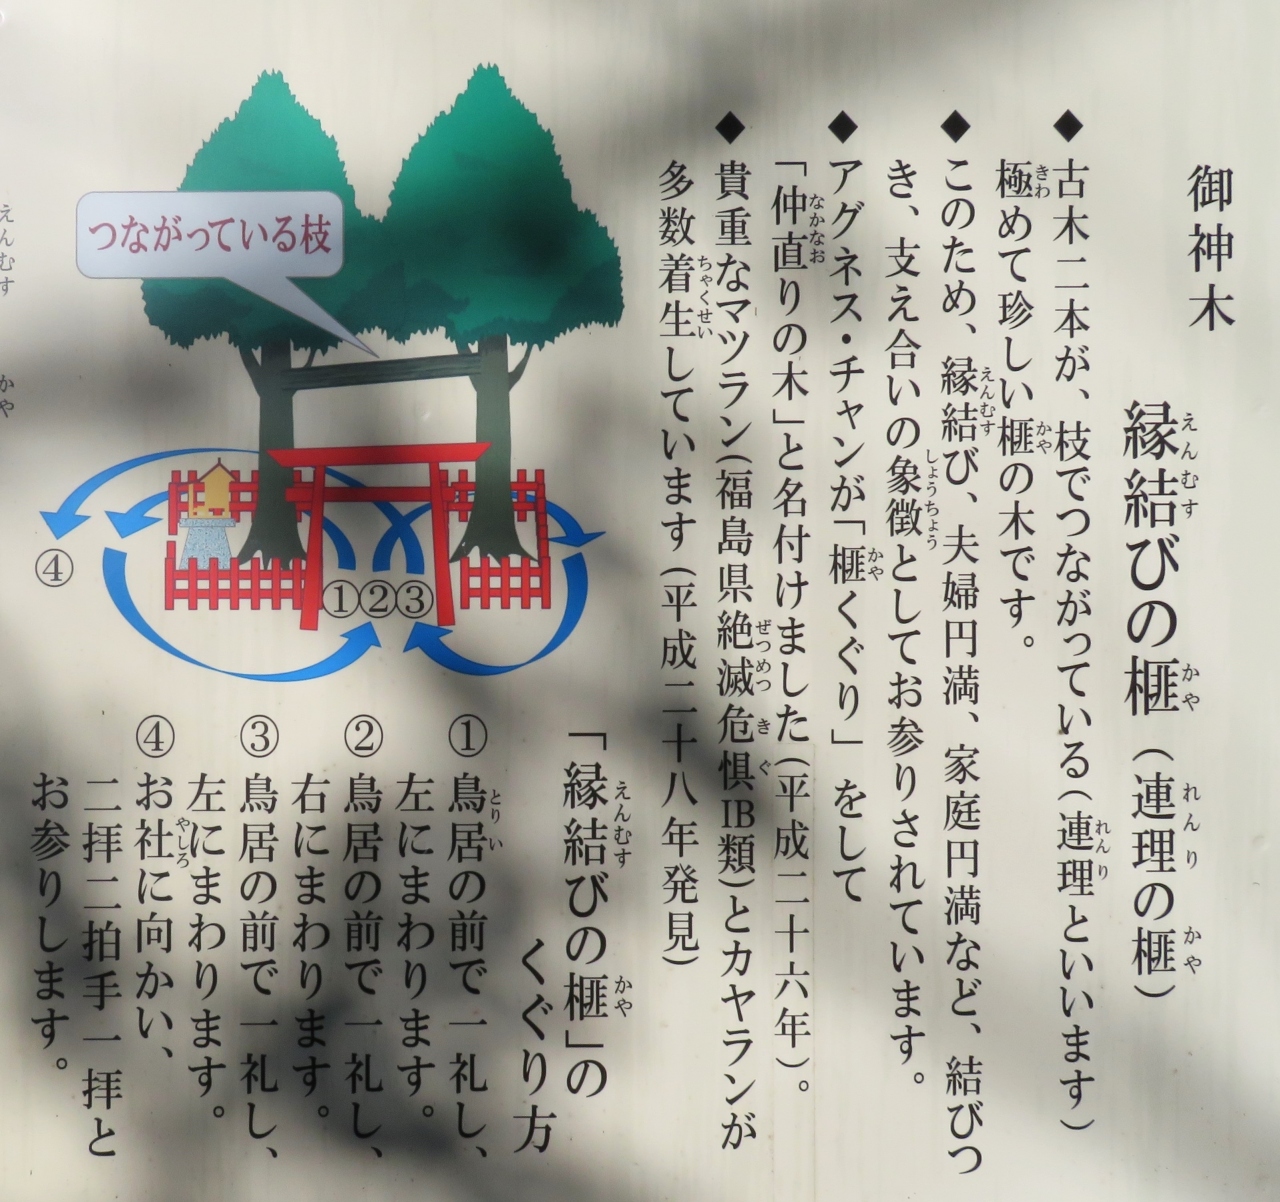 御神木
縁結びの榧（連理の榧）
えんむす かや れんり かや
◆古木二本が、枝でつながっている（連理といいます）
れんり
極めて珍しい榧の木です。
きわ かや
◆このため、縁結び、夫婦円満、家庭円満など、結びつ
えんむす
き、支え合いの象徴としてお参りされています。
しょうちょう
◆アグネス・チャンが「榧くぐり」をして
かや
「仲直りの木」と名付けました（平成二十六年）。
なかなお
◆貴重なマツラン（福島県絶滅危惧IB類）とカヤランが
ぜつめつ きぐ
多数着生しています（平成二十八年発見）
ちゃくせい
つながっている枝
①②③
④
「縁結びの榧」の
えんむす かや
くぐり方
①鳥居の前で一礼し、
とりい
左にまわります。
②鳥居の前で一礼し、
右にまわります。
③鳥居の前で一礼し、
左にまわります。
④お社に向かい、
やしろ
二拝二拍手一拝と
お参りします。
えんむす かや